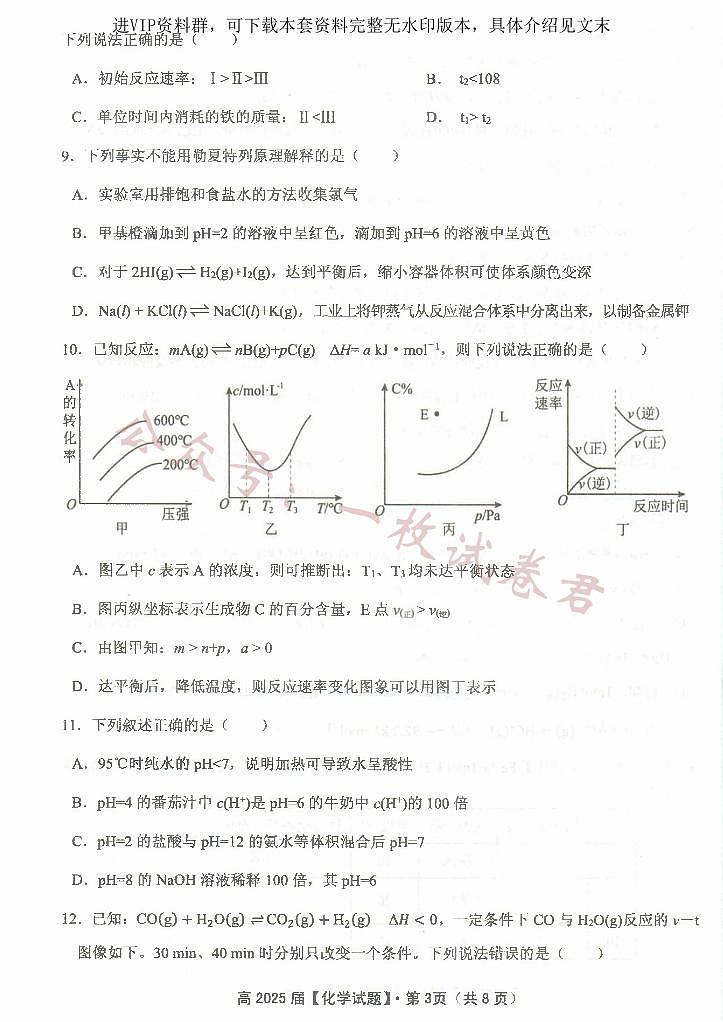 进VIP资料群，可下载本套资料完整无水印版本，具体介绍见文末
下列说法正确的是（ ）
A．初始反应速率：Ⅰ>Ⅱ>Ⅲ B． t₂<108
C．单位时间内消耗的铁的质量：Ⅱ<Ⅲ D． t₁> t₂
9．下列事实不能用勒夏特列原理解释的是（ ）
A．实验室用排饱和食盐水的方法收集氯气
B．甲基橙滴加到 pH=2 的溶液中呈红色，滴加到 pH=6 的溶液中呈黄色
C．对于 2HI(g)⇌H₂(g)+I₂(g)，达到平衡后，缩小容器体积可使体系颜色变深
D．Na(l) + KCl(l)⇌NaCl(l)+K(g)，工业上将钾蒸气从反应混合体系中分离出来，以制备金属钾
10．已知反应：mA(g)⇌nB(g)+pC(g) ΔH= a kJ·mol⁻¹，则下列说法正确的是（ ）
A的转化率 600℃ 400℃ 200℃ O 压强 甲
c/mol·L⁻¹ O T₁ T₂ T₃ T/℃ 乙
C% E L O p/Pa 丙
反应速率 v(逆) v(正) v(正) v(逆) O 反应时间 丁
公众号：一枚试卷君
A．图乙中 c 表示 A 的浓度，则可推断出：T₁、T₃ 均未达平衡状态
B．图丙纵坐标表示生成物 C 的百分含量，E 点 v(正) > v(逆)
C．由图甲知：m > n+p，a > 0
D．达平衡后，降低温度，则反应速率变化图象可以用图丁表示
11．下列叙述正确的是（ ）
A．95℃时纯水的 pH<7，说明加热可导致水呈酸性
B．pH=4 的番茄汁中 c(H⁺)是 pH=6 的牛奶中 c(H⁺)的 100 倍
C．pH=2 的盐酸与 pH=12 的氨水等体积混合后 pH=7
D．pH=8 的 NaOH 溶液稀释 100 倍，其 pH=6
12．已知：CO(g) + H₂O(g) ⇌CO₂(g) + H₂(g) ΔH < 0，一定条件下 CO 与 H₂O(g)反应的 v－t
图像如下。30 min、40 min 时分别只改变一个条件。下列说法错误的是（ ）
高 2025 届【化学试题】· 第 3页（共 8 页）